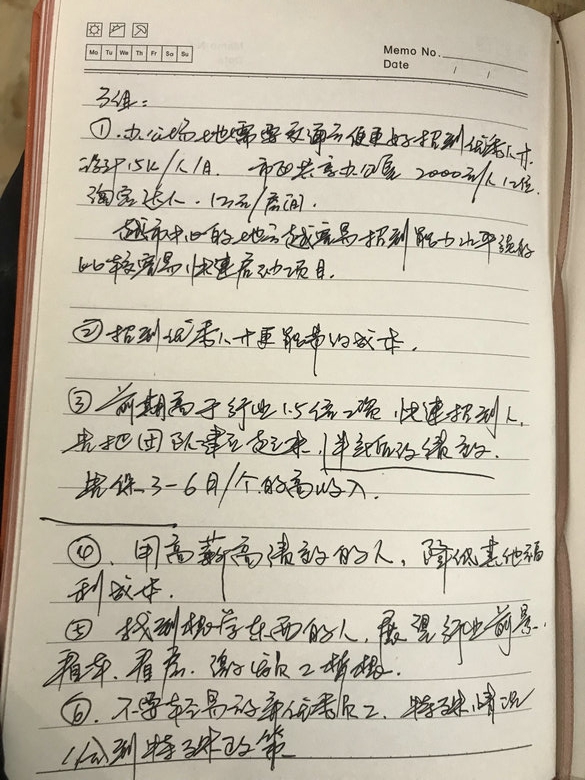 Mo Tu We Th Fr Sa Su
Memo No.
Date / /
3组:
① 办公场地需要交通方便更好招到优秀人才.
设计 15K/人/月. 市区共享办公区 2000元/人 12位.
淘客达人. 12元/房间.
越市中心的地方越容易招到能力水平强的
比较容易快速启动项目.
② 招到优秀人才更能节约成本.
③ 前期高于行业1.5倍工资, 快速招到人.
先把团队建立起来, 半年后改绩效.
先保 3-6月/个的高收入.
④. 用高薪高绩效的人, 降低其他福
利成本.
⑤ 找到想学东西的人, 展望行业前景.
看车. 看房. 激励员工梦想.
⑥. 不要轻易放弃优秀员工. 特殊情况
得到特殊政策